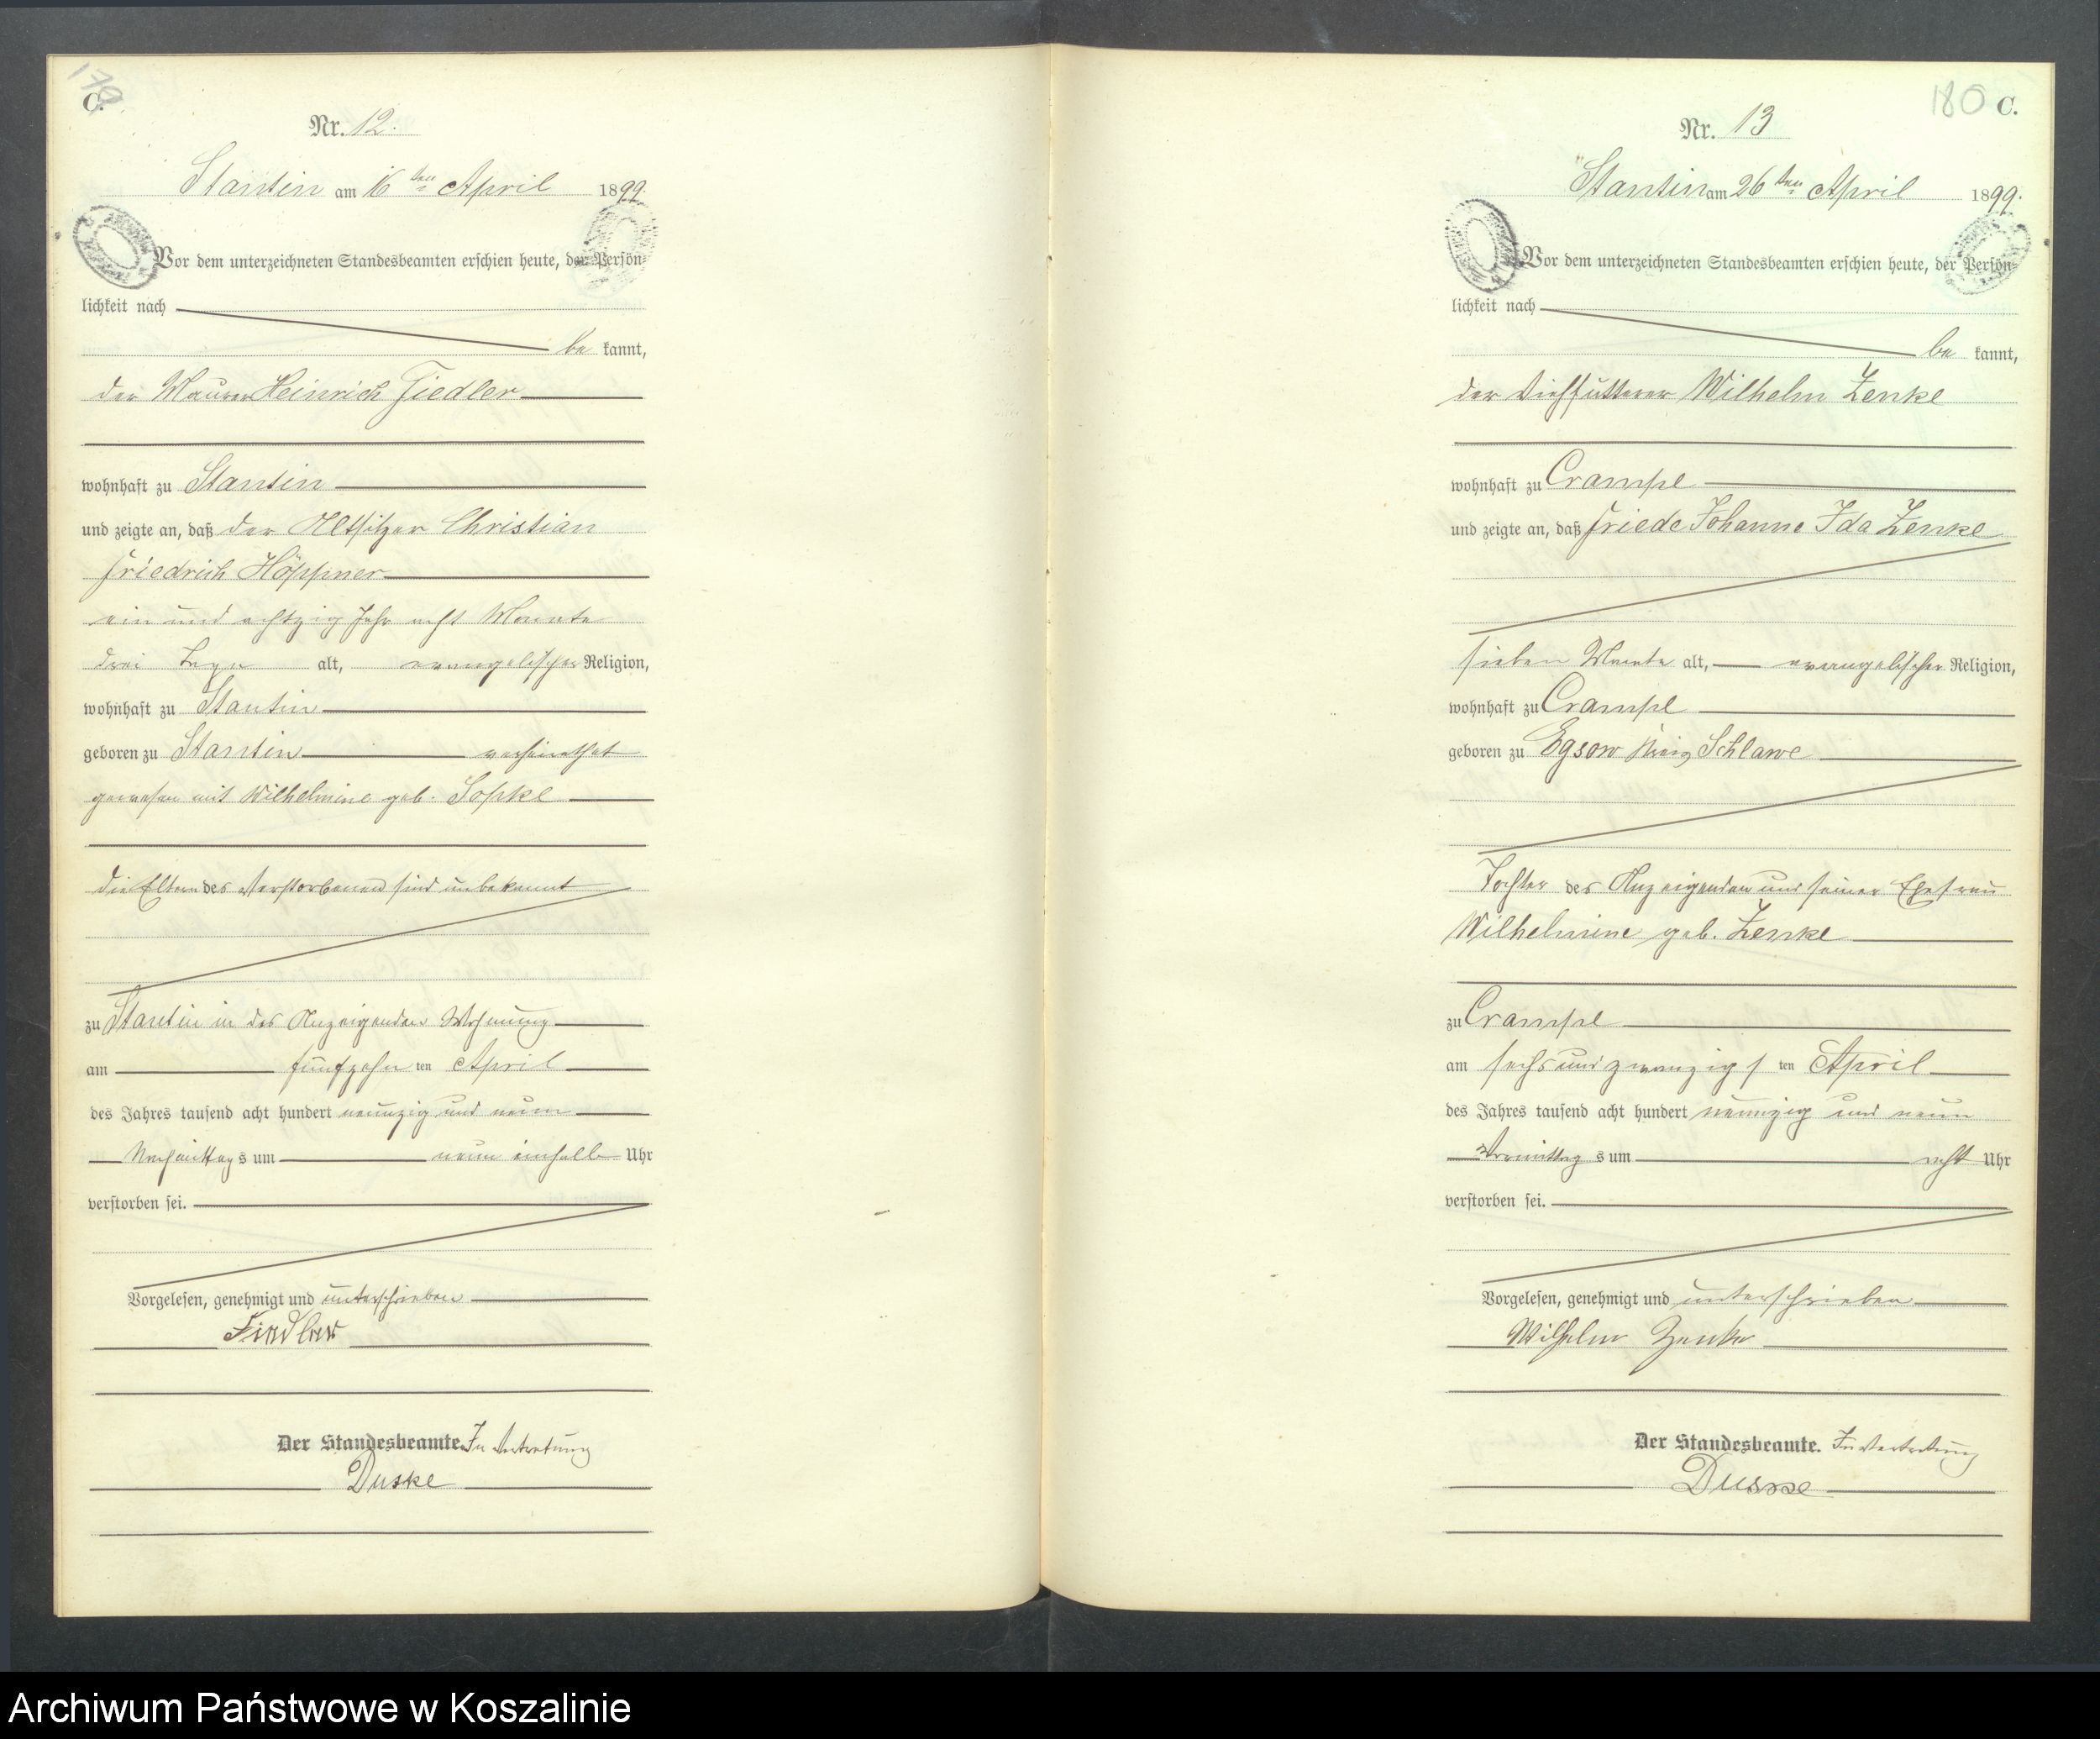 179
C.
Nr. 12.
Stantin am 16ten April 1899.
Vor dem unterzeichneten Standesbeamten erschien heute, der Persön=
lichkeit nach
be kannt,
der Maurer Heinrich Fiedler
wohnhaft zu Stantin
und zeigte an, daß der Altsitzer Christian
Friedrich Höppner
ein und achtzig Jahr acht Monate
drei Tage alt, evangelischer Religion,
wohnhaft zu Stantin
geboren zu Stantin verheirathet
gewesen mit Wilhelmine geb. Sopke
die Eltern des Verstorbenen sind unbekannt
zu Stantin in des Anzeigenden Wohnung
am fünfzehn ten April
des Jahres tausend acht hundert neunzig und neun
Nachmittag s um neun einhalb Uhr
verstorben sei.
Vorgelesen, genehmigt und unterschrieben
Fiedler
Der Standesbeamte. In Vertretung
Duske
180 C.
Nr. 13
Stantin am 26ten April 1899.
Vor dem unterzeichneten Standesbeamten erschien heute, der Persön=
lichkeit nach
be kannt,
der Viehfütterer Wilhelm Zenke
wohnhaft zu Crampe
und zeigte an, daß Friede Johanne Ida Zenke
sieben Monate alt, evangelischer Religion,
wohnhaft zu Crampe
geboren zu Egsow Kreis Schlawe
Tochter des Anzeigenden und seiner Ehefrau
Wilhelmine geb. Zenke
zu Crampe
am sechs und zwanzigs ten April
des Jahres tausend acht hundert neunzig und neun
Vormittag s um acht Uhr
verstorben sei.
Vorgelesen, genehmigt und unterschrieben
Wilhelm Zenke
Der Standesbeamte. In Vertretung
Duske
Archiwum Państwowe w Koszalinie